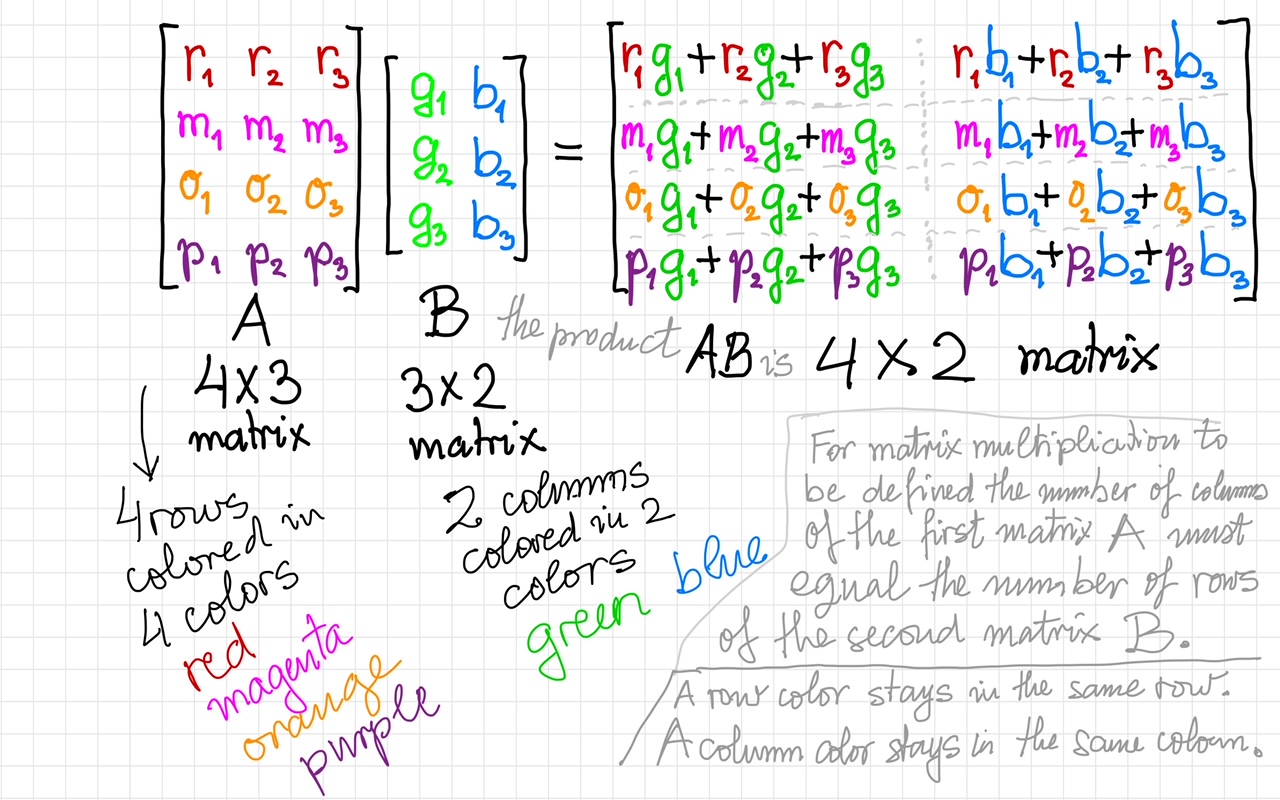 r₁ r₂ r₃
m₁ m₂ m₃
σ₁ σ₂ σ₃
p₁ p₂ p₃
g₁ b₁
g₂ b₂
g₃ b₃
=
r₁g₁+r₂g₂+r₃g₃ r₁b₁+r₂b₂+r₃b₃
m₁g₁+m₂g₂+m₃g₃ m₁b₁+m₂b₂+m₃b₃
σ₁g₁+σ₂g₂+σ₃g₃ σ₁b₁+σ₂b₂+σ₃b₃
p₁g₁+p₂g₂+p₃g₃ p₁b₁+p₂b₂+p₃b₃
A
4×3
matrix
4 rows
colored in
4 colors
red
magenta
orange
purple
B
3×2
matrix
2 columns
colored in 2
colors
green
blue
the product AB is 4×2 matrix
For matrix multiplication to
be defined the number of columns
of the first matrix A must
equal the number of rows
of the second matrix B.
A row color stays in the same row.
A column color stays in the same coloum.